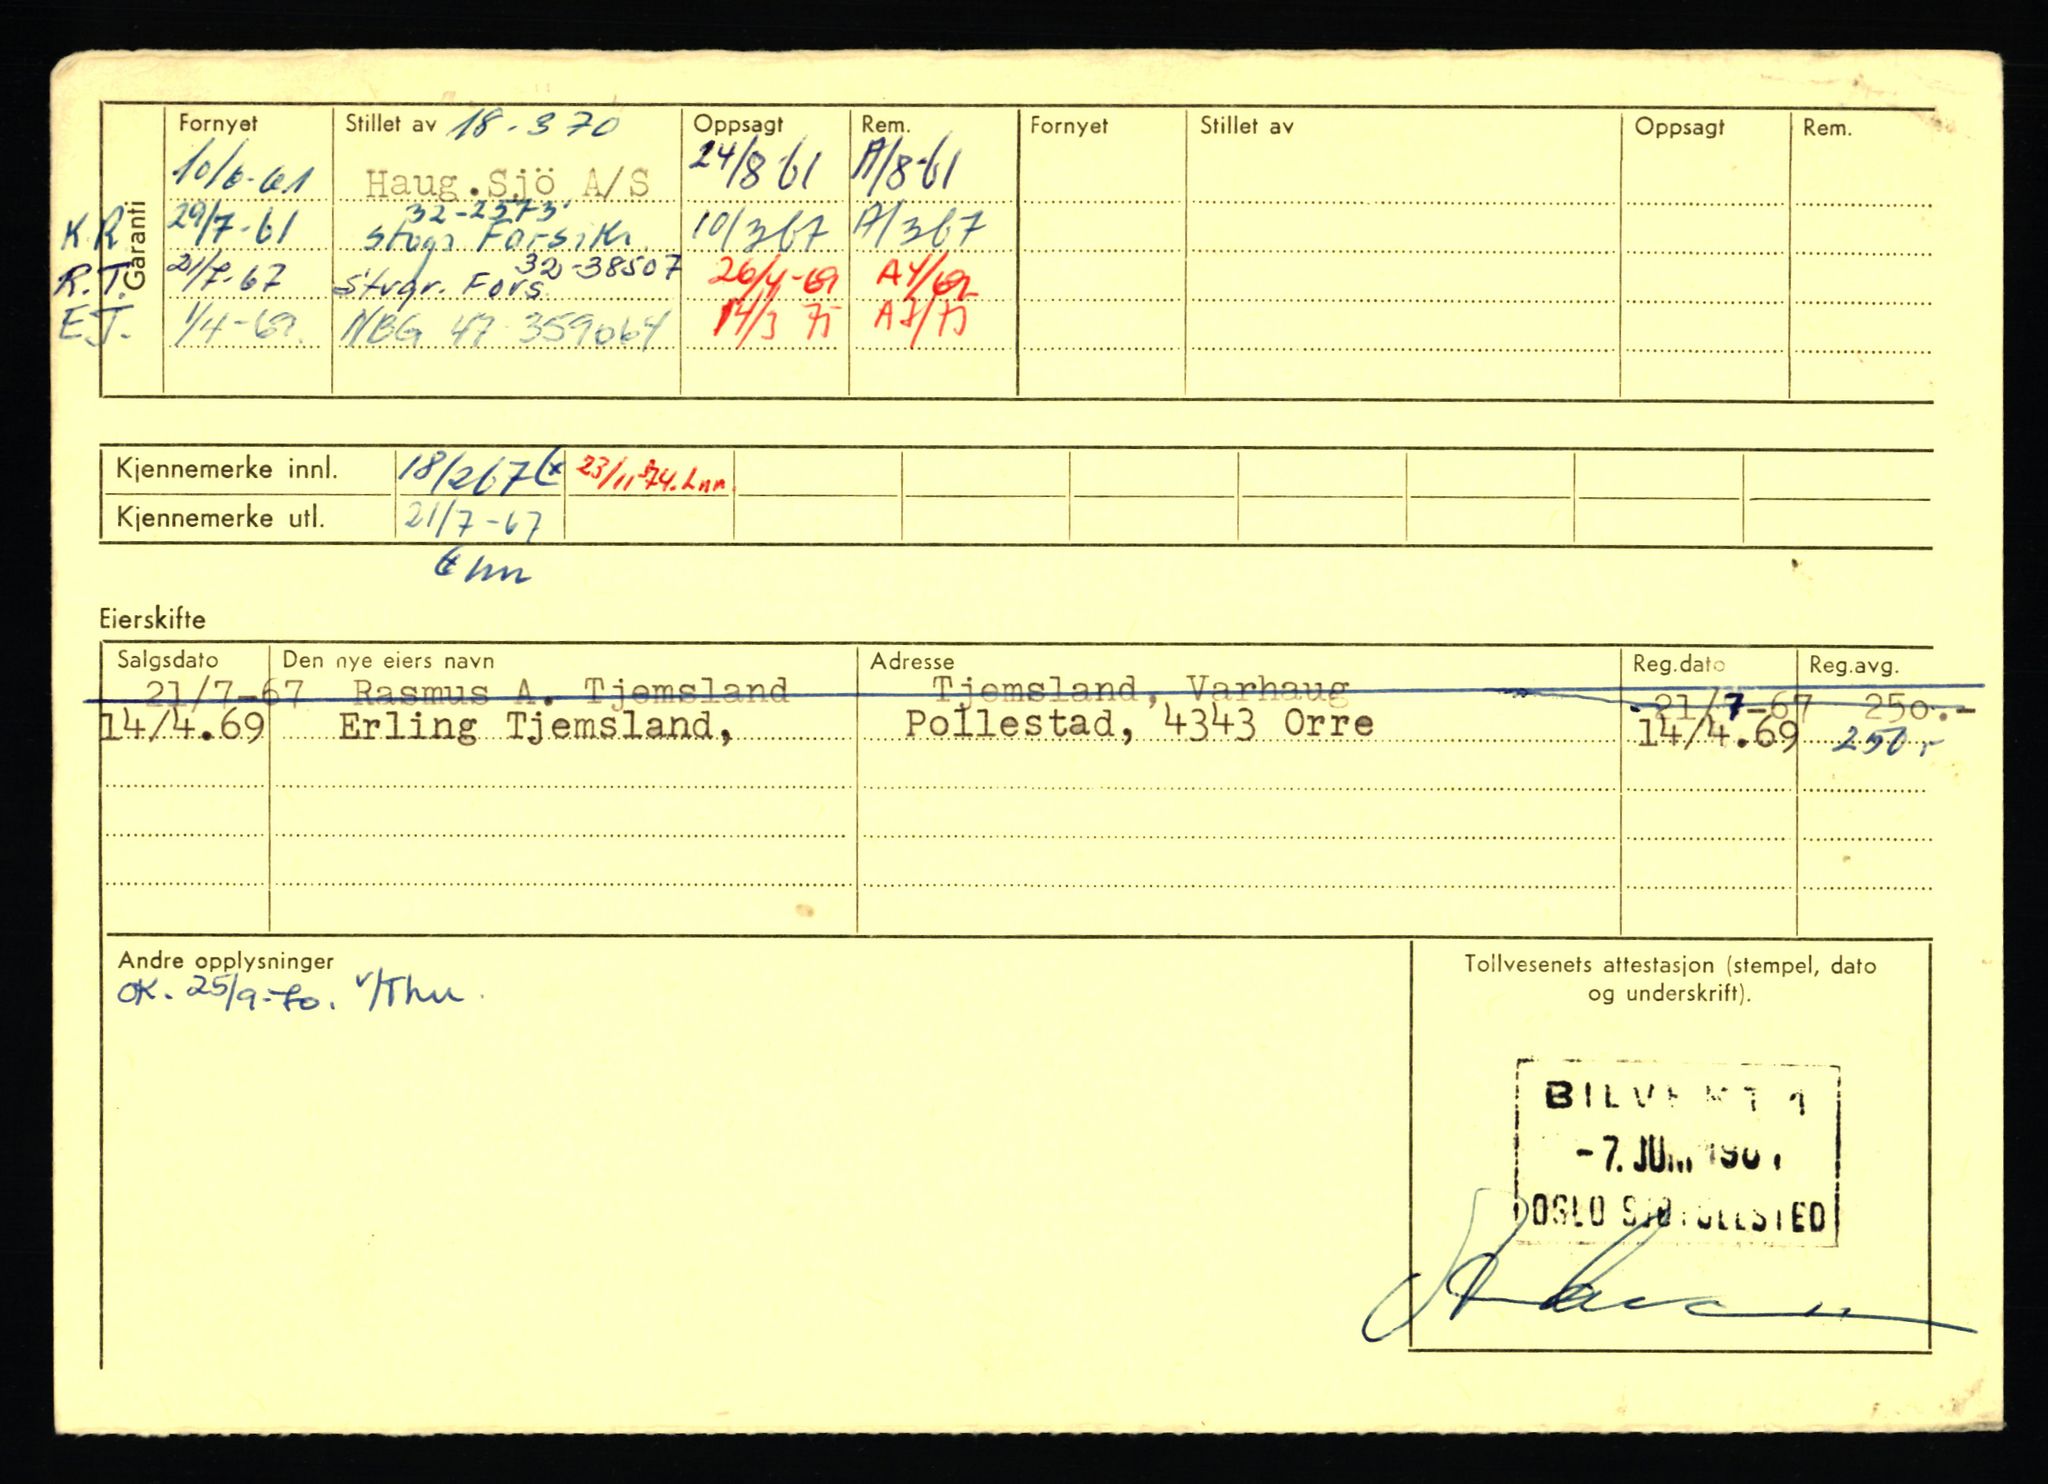 Fornyet Stillet av 18-370 Oppsagt Rem. Fornyet Stillet av Oppsagt Rem.
10/6-61 Haug.Sjö A/S 24/8-61 A/8-61
Garanti
32-2573
K.R 29/7-61 Stvgr Forsikr. 10/3 67 A/3 67
32-38507
R.T. 21/7-67 Stvgr. Fors. 26/4-69 A4/69
E.T. 1/4-69. NBG 47-359064 14/3 75 A3/75
Kjennemerke innl. 18/2 67 23/11-74. Lnn.
Kjennemerke utl. 21/7-67
Eierskifte
Salgsdato Den nye eiers navn Adresse Reg.dato Reg.avg.
21/7-67 Rasmus A. Tjemsland Tjemsland, Varhaug 21/7-67 250.-
14/4.69 Erling Tjemsland, Pollestad, 4343 Orre 14/4.69 250,-
Andre opplysninger
OK. 25/9-70.
Tollvesenets attestasjon (stempel, dato
og underskrift).
-7. JUNI 1961
OSLO SJØTOLLSTED